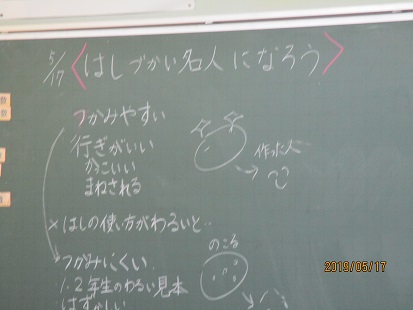 5/17 〈はしづかい名人になろう〉
つかみやすい
行ぎがいい
かっこいい
まねされる
作った人
×はしの使い方がわるいと‥
のこる
つかみにくい
1.2年生のわるい見本
はずかしい
2019/05/17